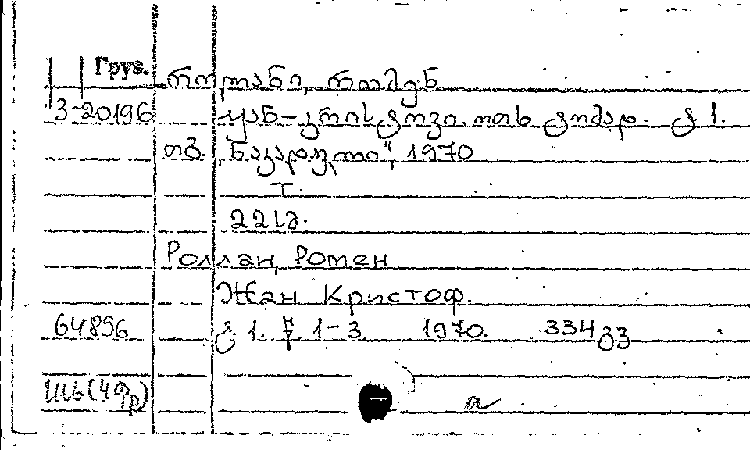 Груз. როლანი, რომენ
3-20196 ჟან-კრისტოფი. ოთხ ტომად. ტ 1.
თბ. „ნაკადული", 1970
T.
221გ.
Роллан, Ромен
Жан Кристоф.
64896 ტ 1. წ 1-3 1970. 334 გვ
И(4Фр)